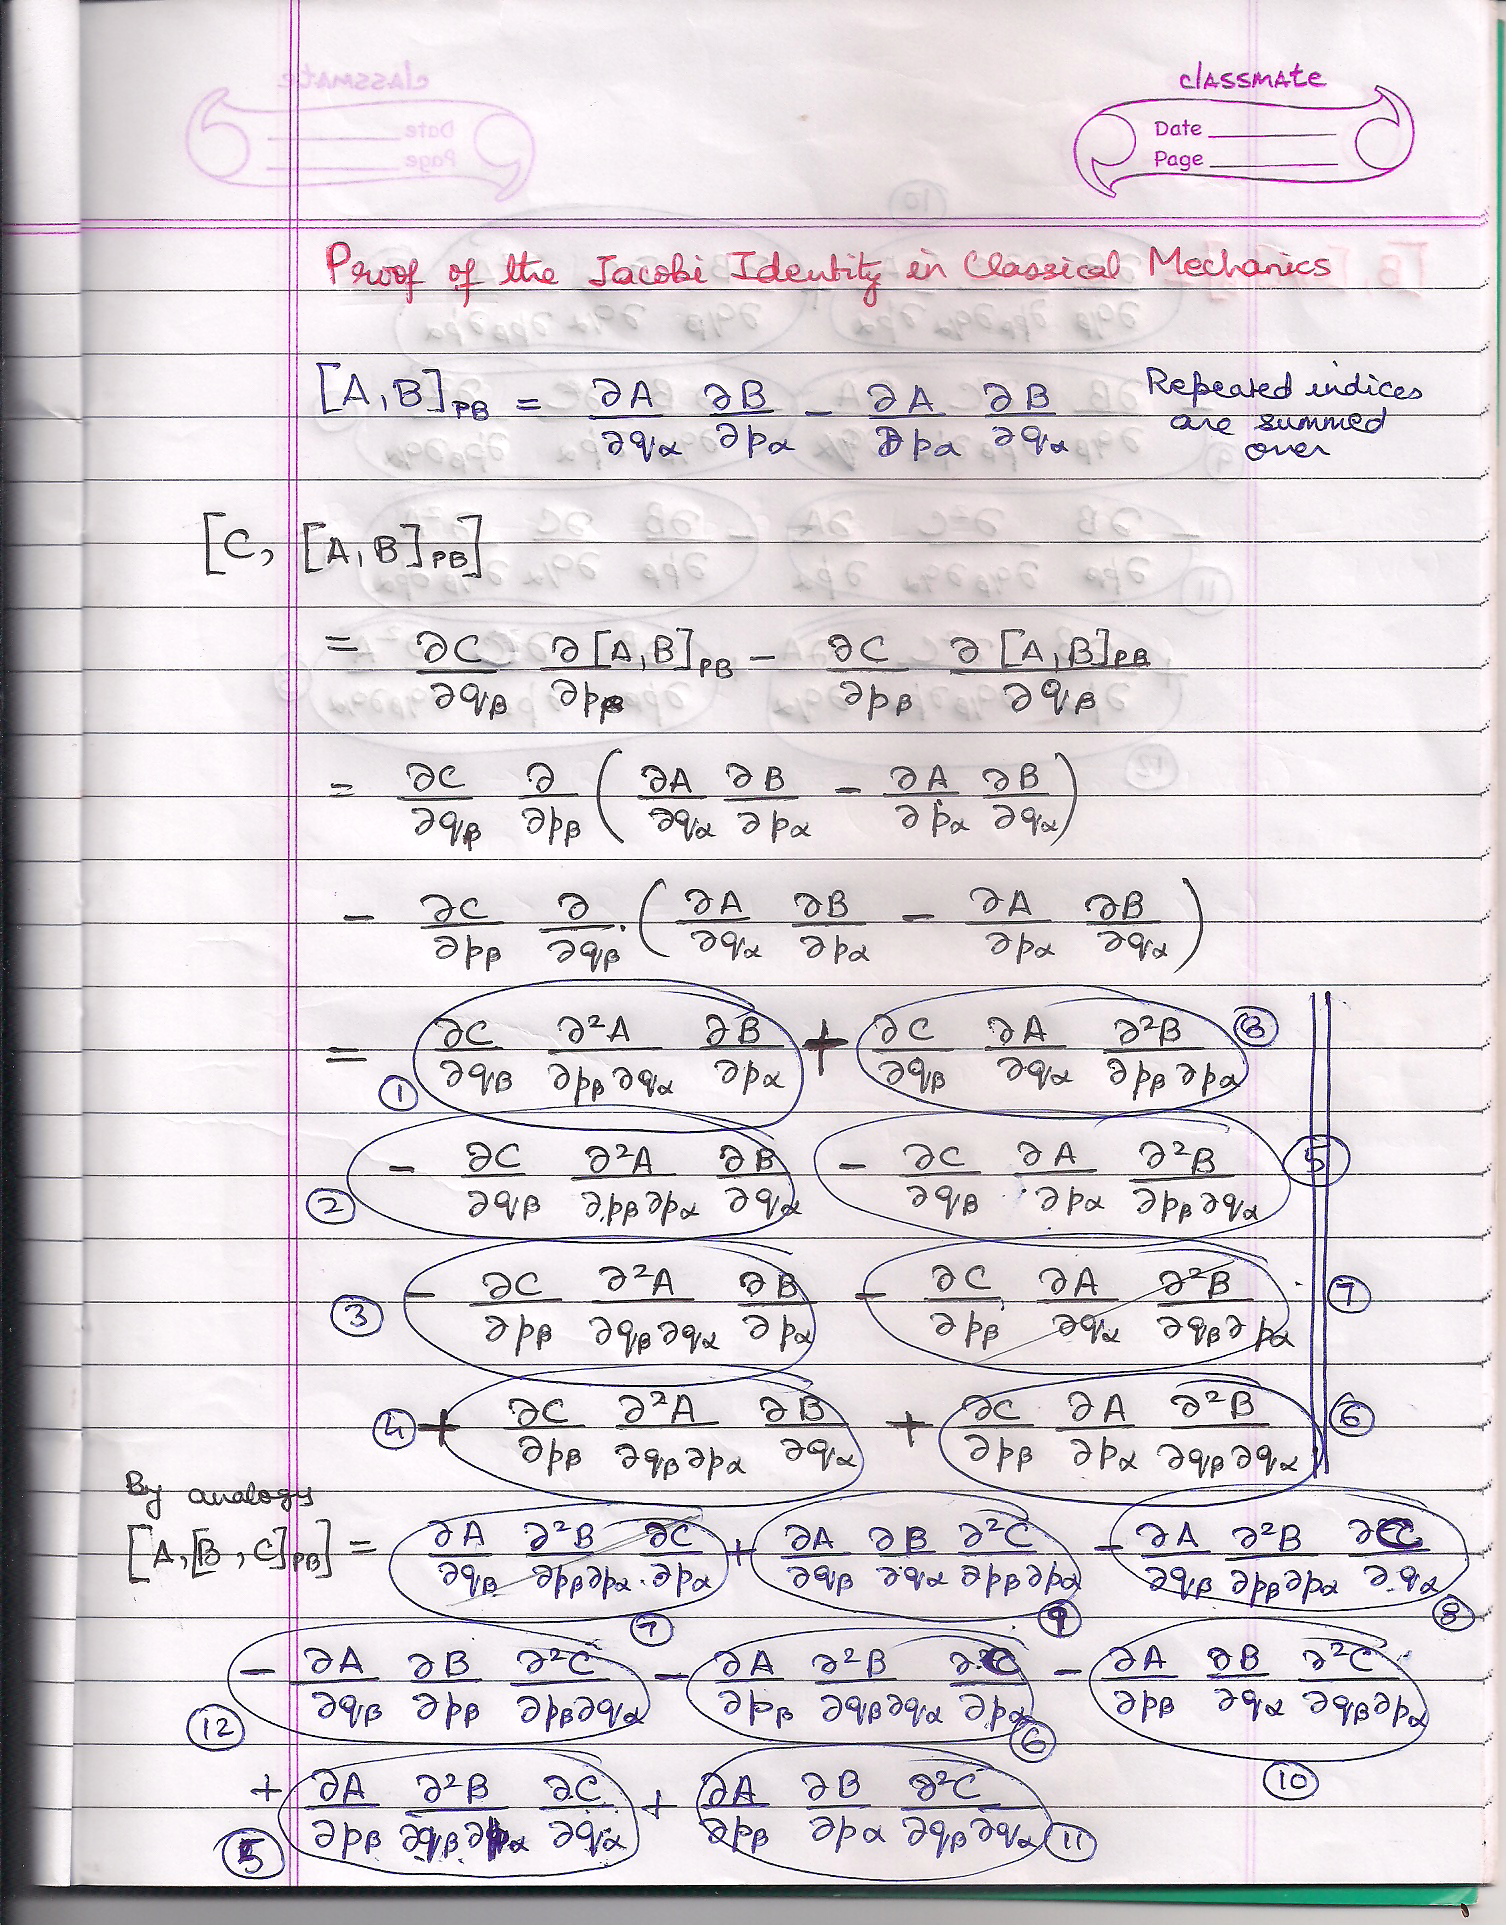 classmate
Date
Page
Proof of the Jacobi Identity in Classical Mechanics
[A,B]_PB = ∂A/∂qα ∂B/∂pα − ∂A/∂pα ∂B/∂qα Repeated indices are summed over
[C, [A,B]_PB]
= ∂C/∂qβ ∂[A,B]_PB/∂pβ − ∂C/∂pβ ∂[A,B]_PB/∂qβ
= ∂C/∂qβ ∂/∂pβ (∂A/∂qα ∂B/∂pα − ∂A/∂pα ∂B/∂qα)
− ∂C/∂pβ ∂/∂qβ (∂A/∂qα ∂B/∂pα − ∂A/∂pα ∂B/∂qα)
= ① ∂C/∂qβ ∂²A/∂pβ∂qα ∂B/∂pα + ∂C/∂qβ ∂A/∂qα ∂²B/∂pβ∂pα ⑧
② − ∂C/∂qβ ∂²A/∂pβ∂pα ∂B/∂qα − ∂C/∂qβ ∂A/∂pα ∂²B/∂pβ∂qα ⑤
③ − ∂C/∂pβ ∂²A/∂qβ∂qα ∂B/∂pα − ∂C/∂pβ ∂A/∂qα ∂²B/∂qβ∂pα ⑦
④ + ∂C/∂pβ ∂²A/∂qβ∂pα ∂B/∂qα + ∂C/∂pβ ∂A/∂pα ∂²B/∂qβ∂qα ⑥
By analogy
[A,[B,C]_PB] = ∂A/∂qβ ∂²B/∂pβ∂pα ∂C/∂pα ⑦ + ∂A/∂qβ ∂B/∂qα ∂²C/∂pβ∂pα ⑨ − ∂A/∂qβ ∂²B/∂pβ∂pα ∂C/∂qα ⑧
⑫ − ∂A/∂qβ ∂B/∂pβ ∂²C/∂pβ∂qα − ∂A/∂pβ ∂²B/∂qβ∂qα ∂C/∂pα ⑥ − ∂A/∂pβ ∂B/∂qα ∂²C/∂qβ∂pα ⑩
⑤ + ∂A/∂pβ ∂²B/∂qβ∂pα ∂C/∂qα + ∂A/∂pβ ∂B/∂pα ∂²C/∂qβ∂qα ⑪